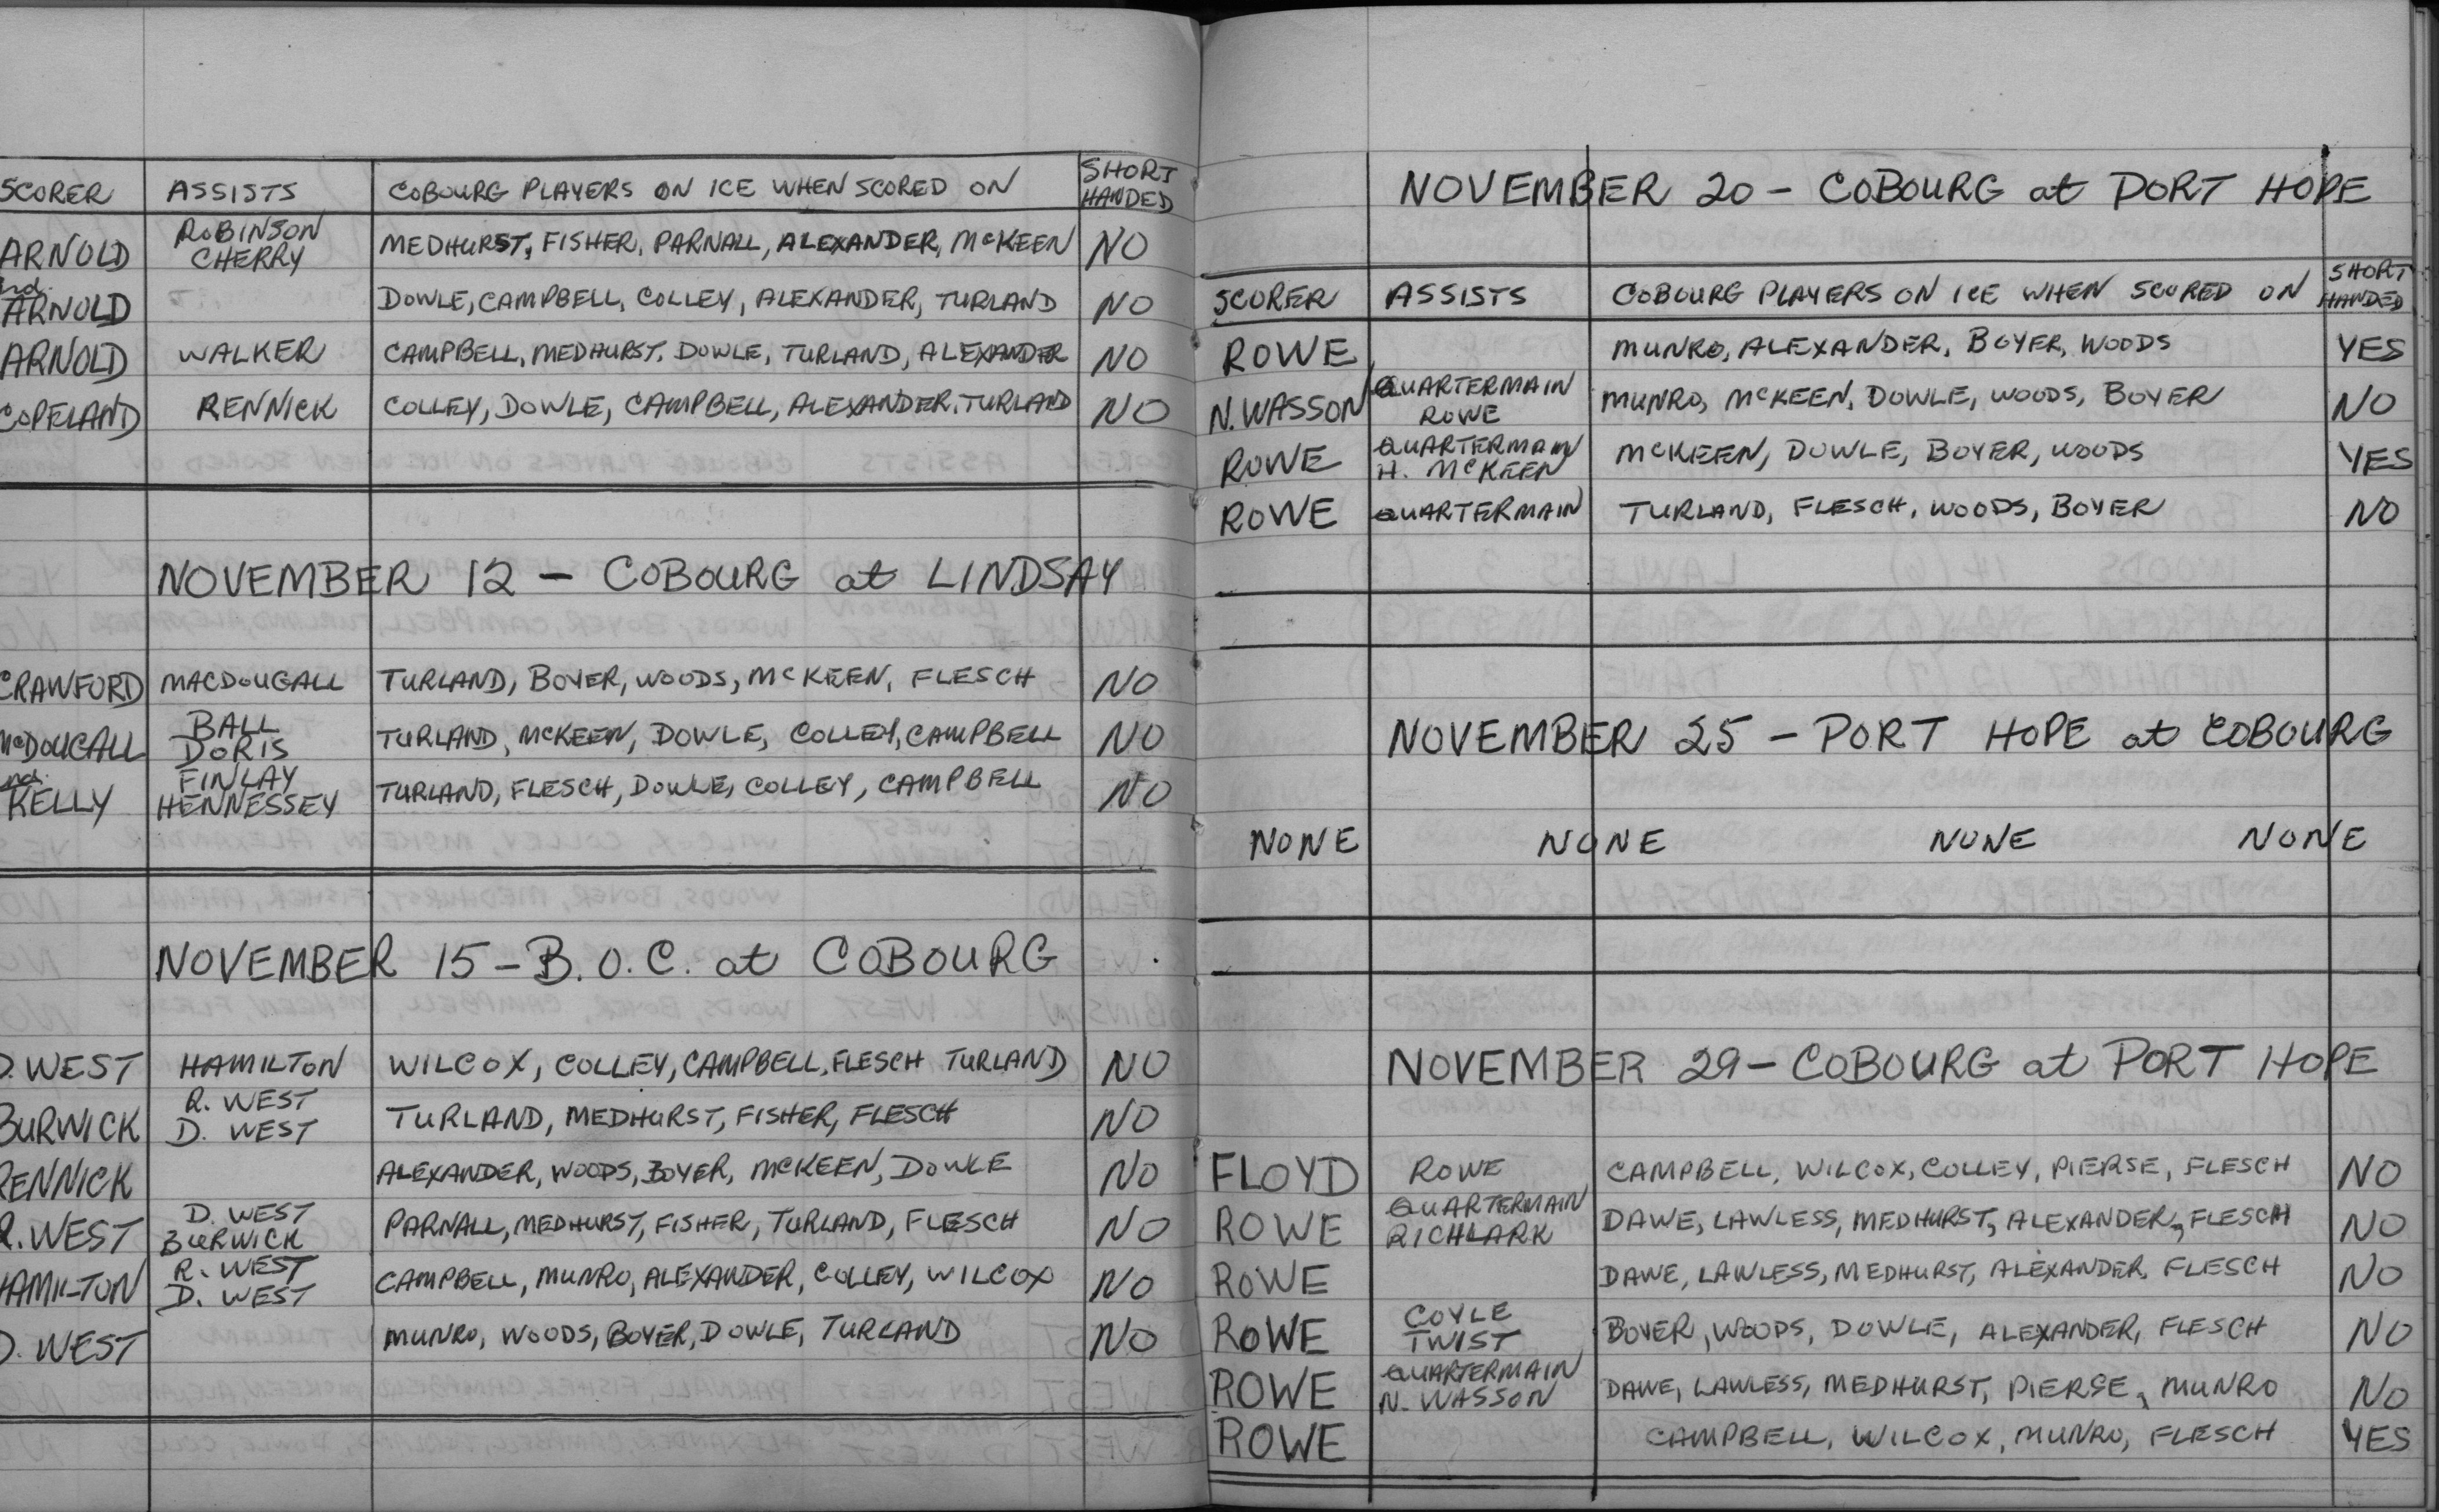 SCORER ASSISTS COBOURG PLAYERS ON ICE WHEN SCORED ON SHORT HANDED
ARNOLD ROBINSON CHERRY MEDHURST, FISHER, PARNALL, ALEXANDER, MCKEEN NO
ARNOLD DOWLE, CAMPBELL, COLLEY, ALEXANDER, TURLAND NO
ARNOLD WALKER CAMPBELL, MEDHURST, DOWLE, TURLAND, ALEXANDER NO
COPELAND RENNICK COLLEY, DOWLE, CAMPBELL, ALEXANDER, TURLAND NO
NOVEMBER 12 - COBOURG at LINDSAY
CRAWFORD MACDOUGALL TURLAND, BOYER, WOODS, MCKEEN, FLESCH NO
MCDOUGALL BALL DORIS TURLAND, MCKEEN, DOWLE, COLLEY, CAMPBELL NO
KELLY FINLAY HENNESSEY TURLAND, FLESCH, DOWLE, COLLEY, CAMPBELL NO
NOVEMBER 15 - B.O.C. at COBOURG
D. WEST HAMILTON WILCOX, COLLEY, CAMPBELL, FLESCH TURLAND NO
BURWICK R. WEST D. WEST TURLAND, MEDHURST, FISHER, FLESCH NO
RENNICK ALEXANDER, WOODS, BOYER, MCKEEN, DOWLE NO
R. WEST D. WEST BURWICK PARNALL, MEDHURST, FISHER, TURLAND, FLESCH NO
HAMILTON R. WEST D. WEST CAMPBELL, MUNRO, ALEXANDER, COLLEY, WILCOX NO
D. WEST MUNRO, WOODS, BOYER, DOWLE, TURLAND NO
NOVEMBER 20 - COBOURG at PORT HOPE
SCORER ASSISTS COBOURG PLAYERS ON ICE WHEN SCORED ON SHORT HANDED
ROWE MUNRO, ALEXANDER, BOYER, WOODS YES
N. WASSON QUARTERMAIN ROWE MUNRO, MCKEEN, DOWLE, WOODS, BOYER NO
ROWE QUARTERMAIN H. MCKEEN MCKEEN, DOWLE, BOYER, WOODS YES
ROWE QUARTERMAIN TURLAND, FLESCH, WOODS, BOYER NO
NOVEMBER 25 - PORT HOPE at COBOURG
NONE NONE NONE NONE
NOVEMBER 29 - COBOURG at PORT HOPE
FLOYD ROWE CAMPBELL, WILCOX, COLLEY, PIERSE, FLESCH NO
ROWE QUARTERMAIN RICHLARK DAWE, LAWLESS, MEDHURST, ALEXANDER, FLESCH NO
ROWE DAWE, LAWLESS, MEDHURST, ALEXANDER, FLESCH NO
ROWE COYLE TWIST BOYER, WOODS, DOWLE, ALEXANDER, FLESCH NO
ROWE QUARTERMAIN N. WASSON DAWE, LAWLESS, MEDHURST, PIERSE, MUNRO NO
ROWE CAMPBELL, WILCOX, MUNRO, FLESCH YES